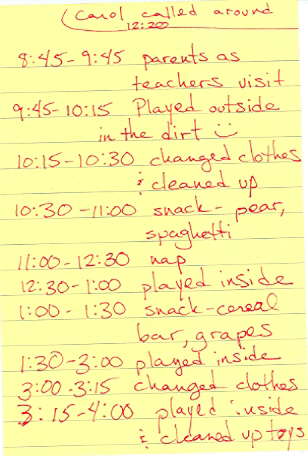 (Carol called around
12:20)
8:45-9:45 parents as
teachers visit
9:45-10:15 Played outside
in the dirt :)
10:15-10:30 changed clothes
& cleaned up
10:30-11:00 snack - pear,
spaghetti
11:00-12:30 nap
12:30-1:00 played inside
1:00-1:30 snack-cereal
bar, grapes
1:30-3:00 played inside
3:00-3:15 changed clothes
3:15-4:00 played inside
& cleaned up toys